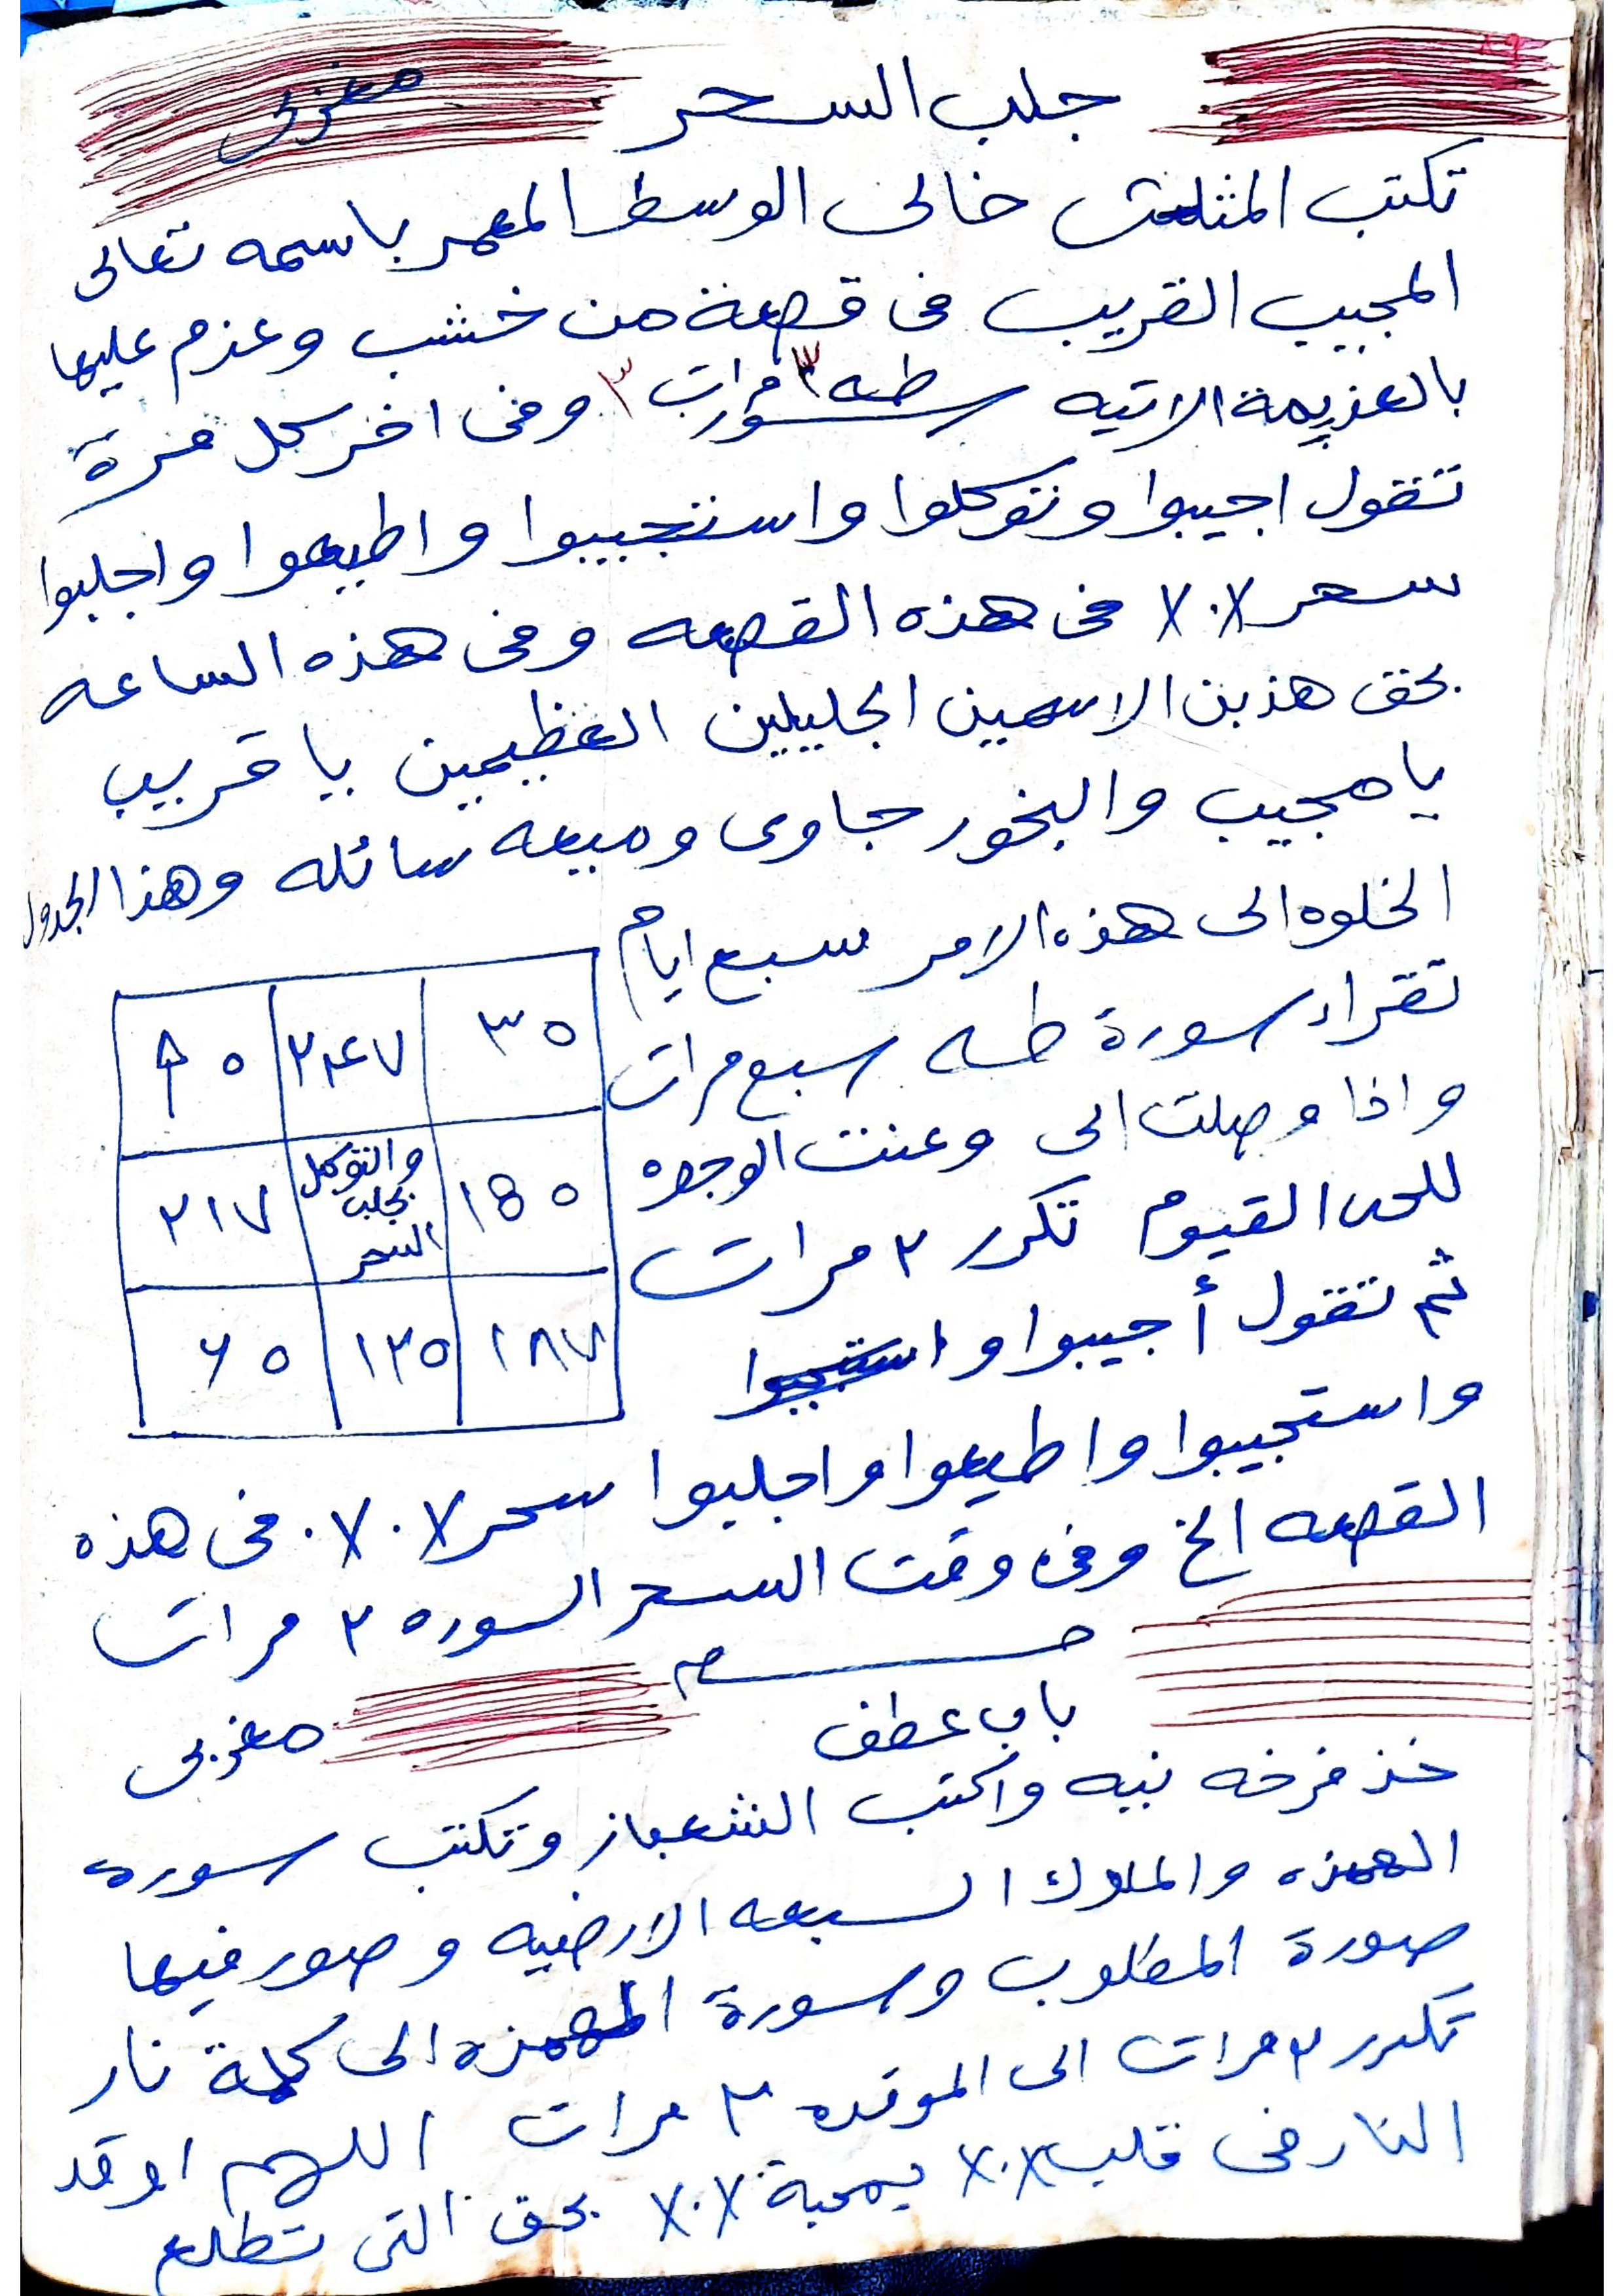 جلب السحر
مغربى
تكتب المثلث خالى الوسط المعمر باسمه تعالى
المجيب القريب فى قصعة من خشب وعزم عليها
بالعزيمة الاتيه سورت طه ٣ مرات ٣ وفى اخر كل مرة
تقول اجيبوا وتوكلوا واستجيبوا واطيعوا واجلبوا
سحر ٧.٧ فى هذه القصعه وفى هذه الساعه
بحق هذين الاسمين الجليلين العظيمين يا قريب
يا مجيب والبخور جاوى وميعه سائله وهذا الجدول
الخلوه الى هذه الامر سبع ايام
تقراء سورة طه سبع مرات
واذا وصلت الى وعنت الوجوه
للحى القيوم تكرر ٢ مرات
ثم تقول أجيبوا و
واستجيبوا واطيعوا واجلبوا سحر ٧.٧. فى هذه
القصعه الخ وفى وقت السحر السوره ٢ مرات
٣٥ ٢٤٧ ٩٥
١٥٥ والتوكل بجلب السحر ٢١٧
١٨٧ ١٢٥ ٦٥
باب عطف
مغربى
خذ فرخه نيه واكتب الشعباز وتكتب سوره
الهمزه والملوك السبعه الارضيه وصور فيها
صورة المطلوب وسورة الهمزه الى كلمة نار
تكرر ٢ مرات الى الموقده ٢ مرات اللهم اوقد
النار فى قلب ٧.٧ بمحبة ٧.٧ بحق التى تطلع